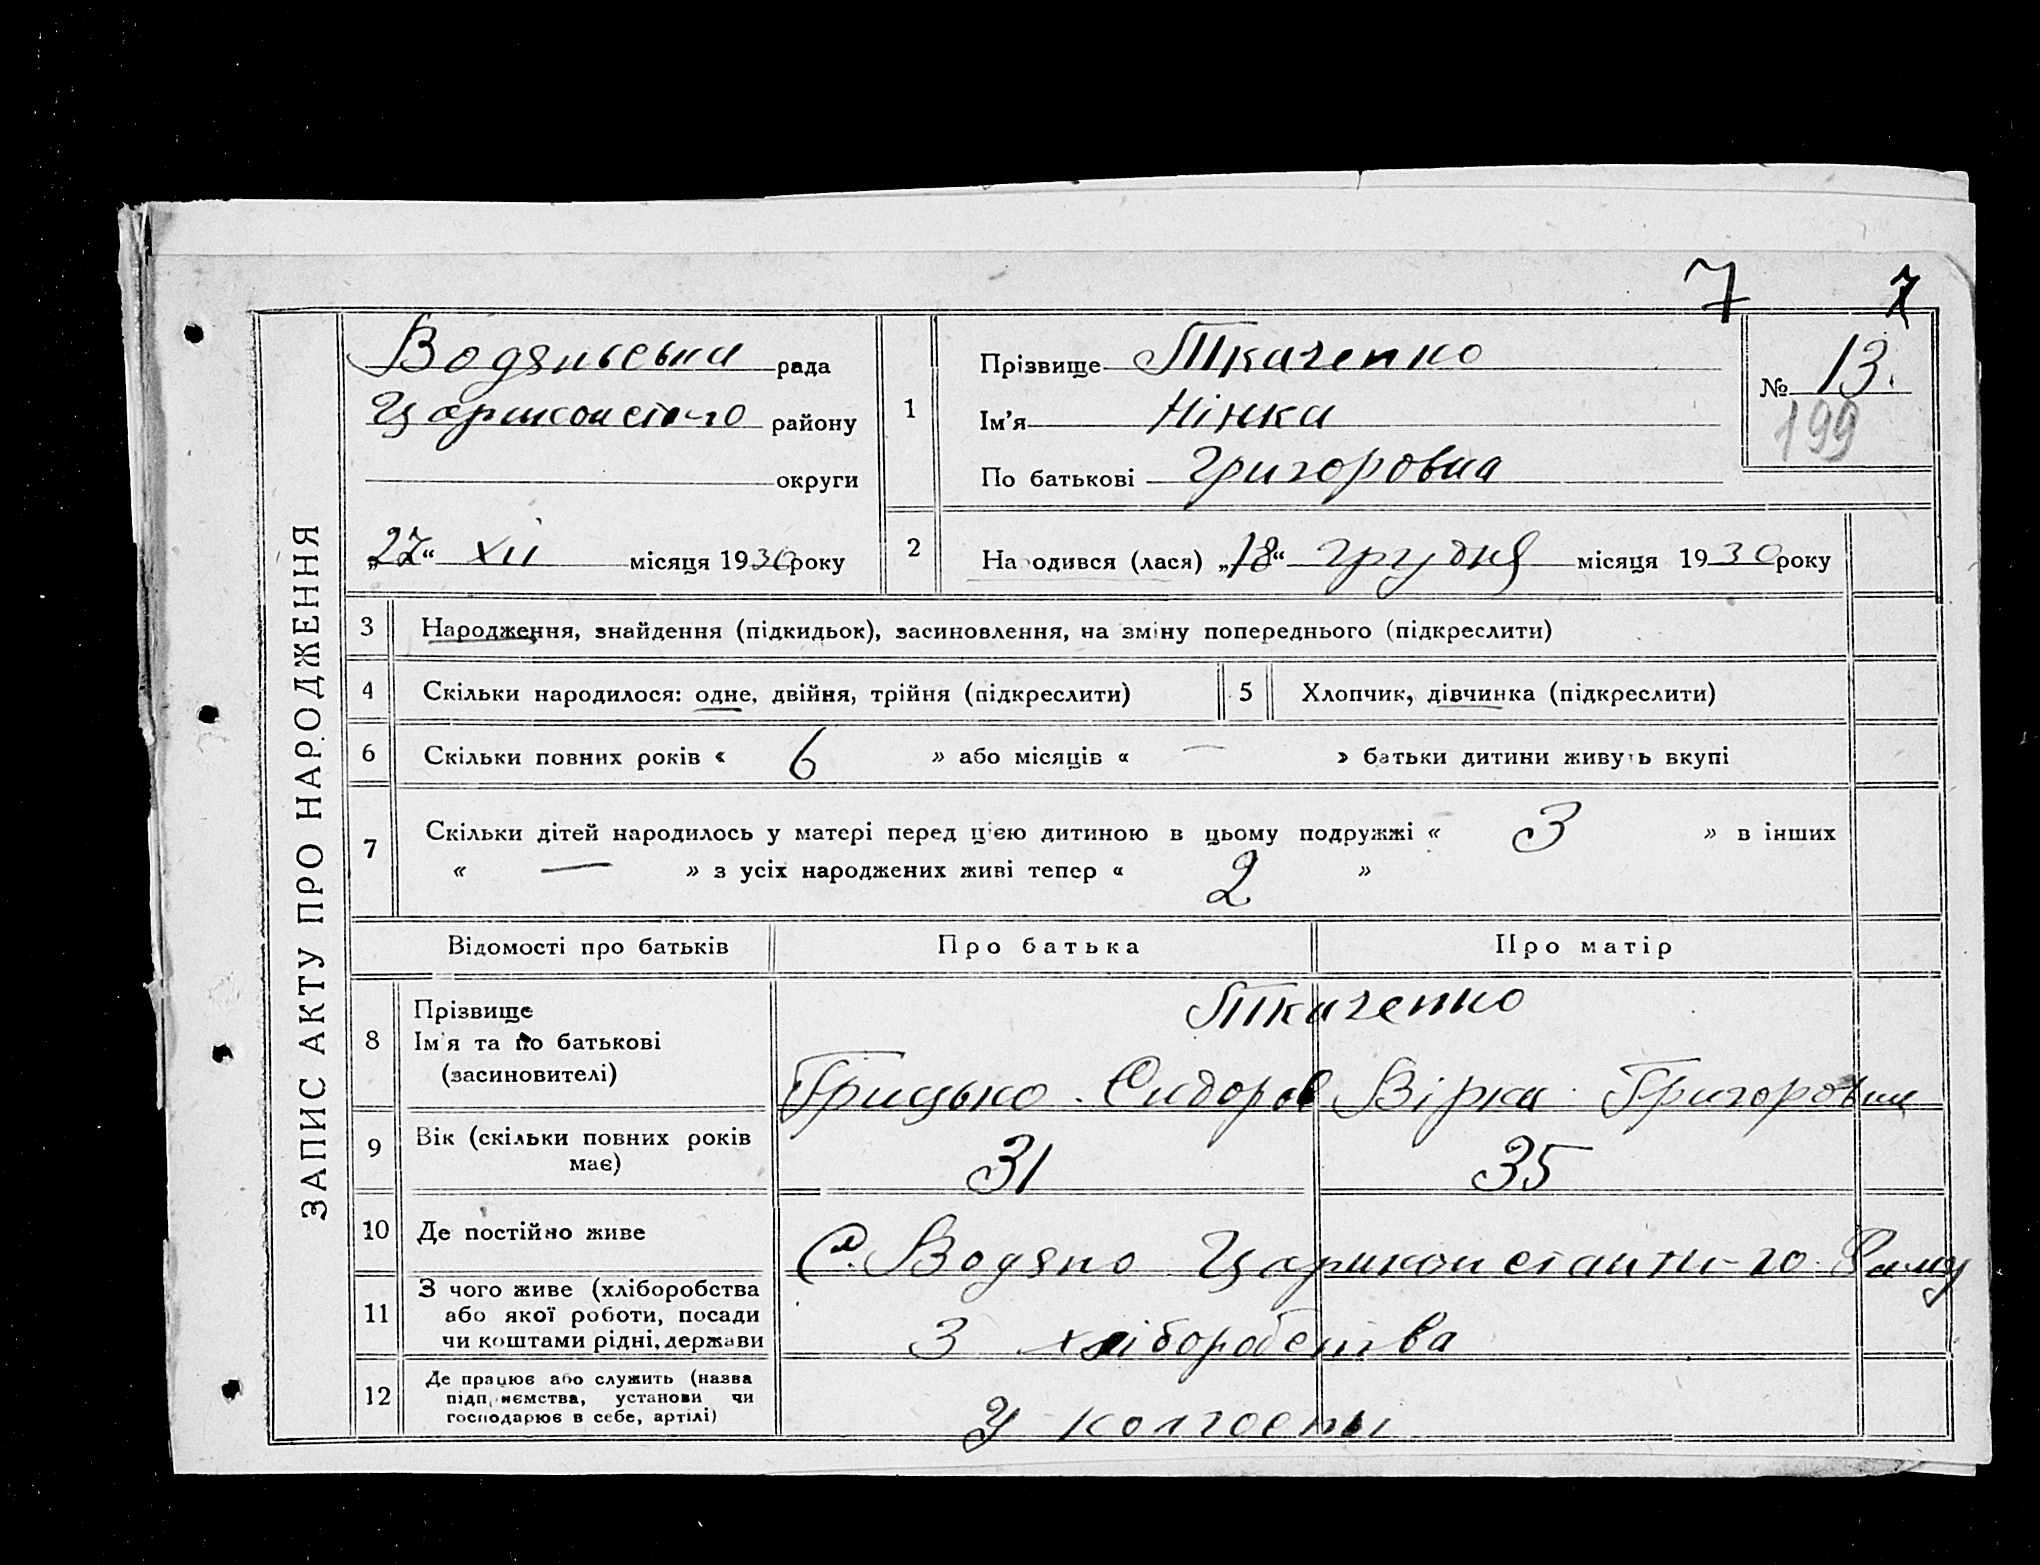 7 7
ЗАПИС АКТУ ПРО НАРОДЖЕННЯ
Водяньська рада
Царикон ст-го району
округи
„27“ XII місяця 1930 року
1
Прізвище Ткаченко
Ім'я Нінка
По батькові Григоровна
№ 13.
199
2 Народився (лася) „18“ грудня місяця 1930 року
3 Народження, знайдення (підкидьок), засиновлення, на зміну попереднього (підкреслити)
4 Скільки народилося: одне, двійня, трійня (підкреслити) 5 Хлопчик, дівчинка (підкреслити)
6 Скільки повних років « 6 » або місяців « — » батьки дитини живуть вкупі
7 Скільки дітей народилось у матері перед цією дитиною в цьому подружжі « 3 » в інших
« — » з усіх народжених живі тепер « 2 »
Відомості про батьків Про батька Про матір
8 Прізвище
Ім'я та по батькові
(засиновителі)
Ткаченко
Грицько Сидоров Вірка Григоровна
9 Вік (скільки повних років
має)
31 35
10 Де постійно живе С. Водяно Цариконстанти-го
11 З чого живе (хліборобства
або якої роботи, посади
чи коштами рідні, держави
З хліборобства
12 Де працює або служить (назва
підприємства, установи чи
господарює в себе, артілі)
У колгоспи